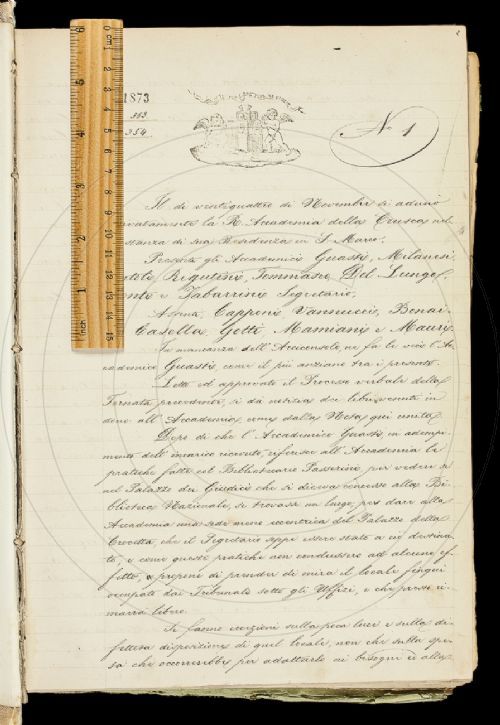 1873
353
354
No 1
Il dì ventiquattro di Novembre si adunò
vatamente la R. Accademia della Crusca nel
stanza di sua Residenza in S. Marco.
Presenti gli Accademici Guasti, Milanesi
Rigutini, Tommaseo Del Lungo
Conti e Tabarrini Segretario.
Assenti Capponi, Vannucci, Bonai
Casella, Gotti, Mamiani e Mauri.
In mancanza dell'Arciconsolo, ne fa le veci l'Ac
cademico Guasti, come il più anziano tra i presenti.
Letto ed approvato il Processo verbale della
Tornata precedente, si dà notizia dei libri venuti in
dono all'Accademia, come dalla Nota qui unita.
Dopo di che l'Accademico Guasti, in adempi-
mento dell'incarico ricevuto, riferisce all'Accademia le
pratiche fatte col Bibliotecario Passerini, per vedere se
nel Palazzo dei Giudici che si diceva concesso alla Bi-
blioteca Nazionale, si trovasse un luogo per dare alla
Accademia una sede meno eccentrica del Palazzo della
Crocetta, che il Segretario seppe essere stato a ciò destina-
to, e come queste pratiche non condussero ad alcuno ef-
fetto, e propone di prender di mira il locale fin qui
occupato dai Tribunali sotto gli Uffizi, e che presto ri-
marrà libero.
Si fanno eccezioni sulla poca luce e sulla di-
fettosa disposizione di quel locale, non che sulla spe-
sa che occorrerebbe per adattarlo ai bisogni e alla
cm
inch
1
2
3
4
5
6
0
1
2
3
4
5
6
7
8
9
10
11
12
13
14
15